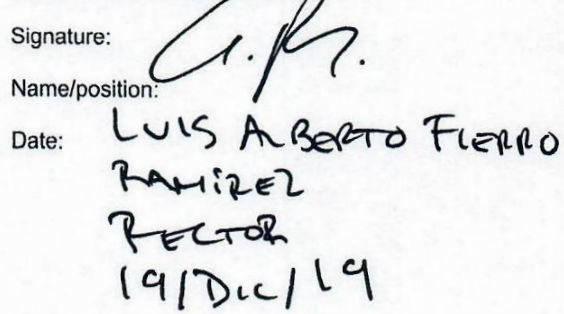 Signature:
Name/position:
Date: LUIS ALBERTO FIERRO
RAMÍREZ
RECTOR
19/DIC/19